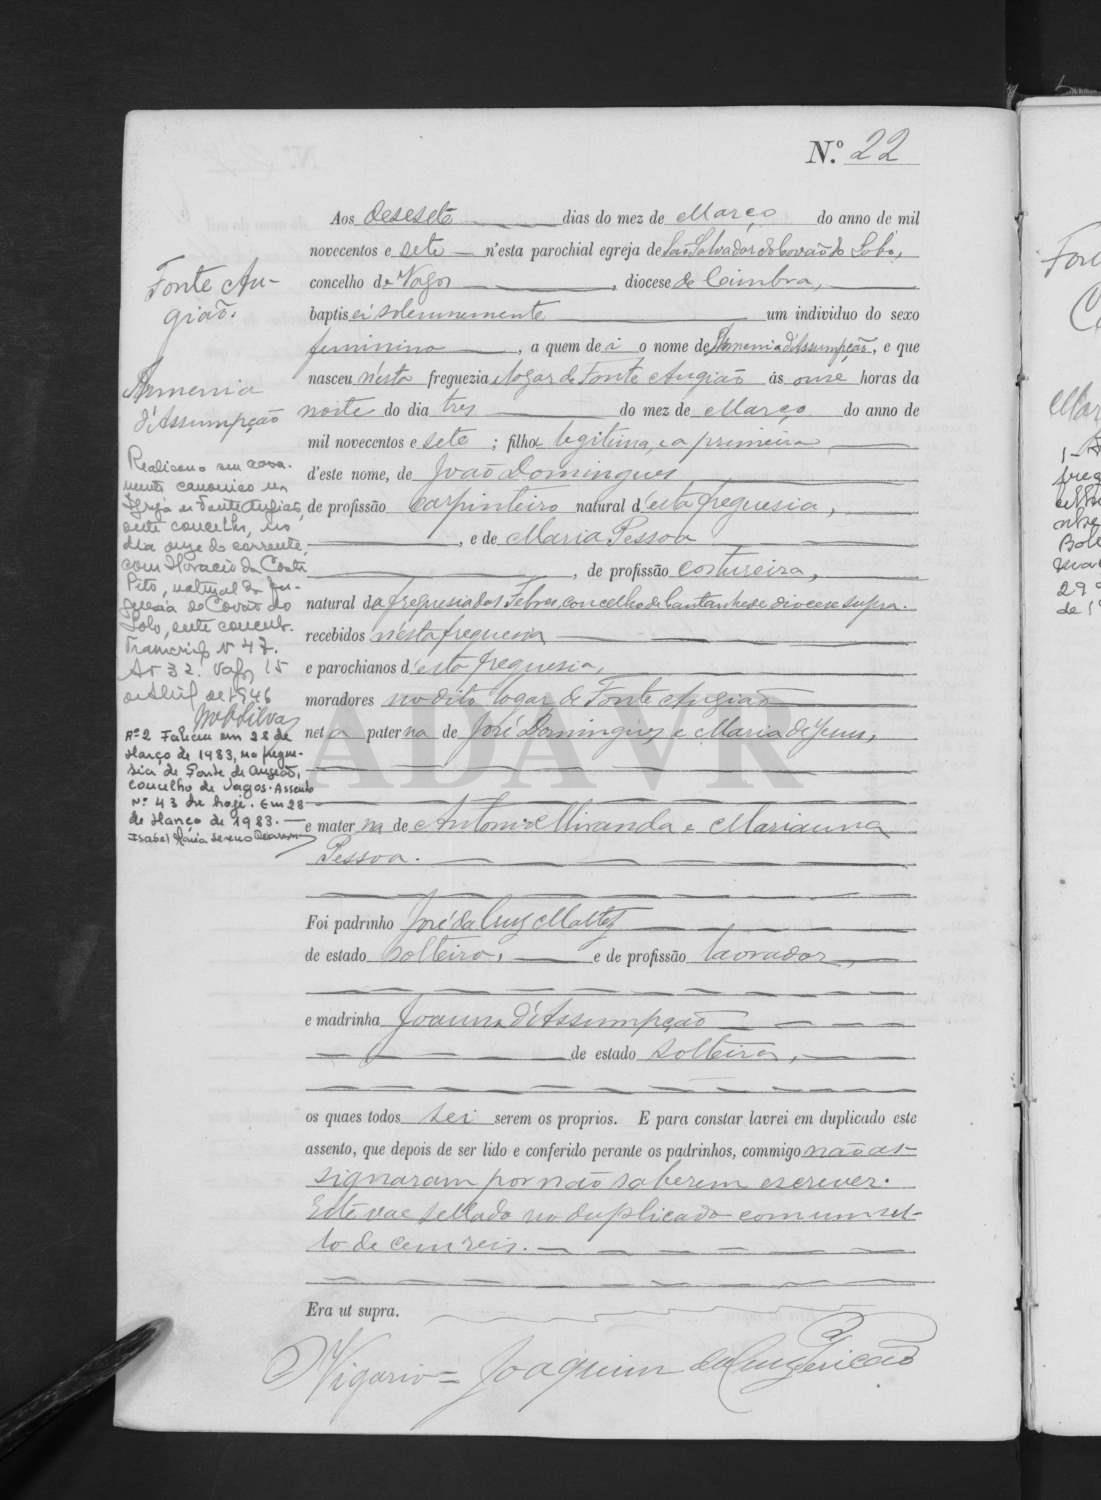 N.º 22
Aos deseseté dias do mez de Março do anno de mil
novecentos e sete n'esta parochial egreja de São Salvador do Covão do Lobo,
concelho de Vagos, diocese de Coimbra,
baptisei solemnemente um individuo do sexo
feminino, a quem dei o nome de Armenia d'Assumpção, e que
nasceu n'esta freguezia logar de Fonte Angião ás onze horas da
noite do dia tres do mez de Março do anno de
mil novecentos e sete; filha legitima, e a primeira
d'este nome, de João Domingues
de profissão carpinteiro natural d'esta freguesia,
, e de Maria Pessoa
, de profissão costureira,
natural da freguesia das Febres concelho de Cantanhede diocese supra.
recebidos n'esta freguesia
e parochianos d'esta freguesia,
moradores no dito logar de Fonte Angião
neta paterna de José Domingues e Maria de Jesus,
e materna de Antonio Miranda e Marianna
Pessoa.
Foi padrinho José da Cruz Mattos
de estado solteiro, e de profissão lavrador,
e madrinha Joanna d'Assumpção
de estado solteira,
os quaes todos sei serem os proprios. E para constar lavrei em duplicado este
assento, que depois de ser lido e conferido perante os padrinhos, commigo não as-
signaram por não saberem escrever.
Este vae sellado no duplicado com um sel-
lo de cem reis.
Era ut supra.
O Vigario = Joaquim da Cruz Pericão
Fonte An-
gião.
Armenia
d'Assumpção
Realizou seu casa-
mento canonico na
Igreja de Fonte Angião,
deste concelho, no
dia onze do corrente,
com Horacio da Costa
Pito, natural da fre-
guesia do Covão do
Lobo, deste concelho.
Transcrição nº 47.
Vagos, 15
de Abril de 1946
Silva
Nº 2 Faleceu em 28 de
Março de 1983, na fregue-
sia de Fonte de Angeão,
concelho de Vagos. Assento
Nº 43 de hoje. Em 28
de Março de 1983.
Isabel Maria
ADAVR